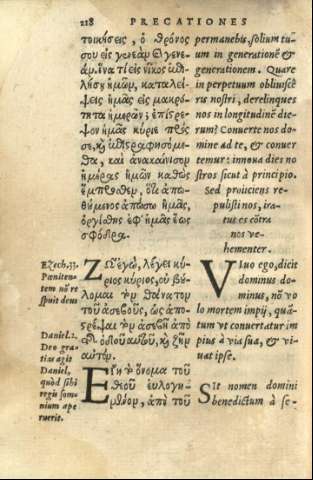 218 PRECATIONES
τοικήσεις, ὁ θρόνος
σου εἰς γενεὰν καὶ γενε-
άν. ἵνα τί εἰς νῖκος ἐπι-
λήσῃ ἡμῶν, καταλεί-
ψεις ἡμᾶς εἰς μακρό-
τητα ἡμερῶν; ἐπίστρε-
ψον ἡμᾶς κύριε πρός
σε, καὶ ἐπιστραφησόμε-
θα, καὶ ἀνακαίνισον
ἡμέρας ἡμῶν καθὼς
ἔμπροσθεν, ὅτι ἀπω-
θούμενος ἀπώσω ἡμᾶς,
ὀργίσθης ἐφ' ἡμᾶς ἕως
σφόδρα.
permanebis. solium tu-
um in generationē &
generationem. Quare
in perpetuum obliuisce-
ris nostri, derelinques
nos in longitudinē die-
rum? Conuerte nos do-
mine ad te, & conuer
temur: innoua dies no
stros sicut à principio.
Sed proiiciens re-
pulisti nos, ira-
tus es cōtra
nos ve-
hementer.
Ezech. 33.
Pœniten-
tem nō re
spuit deus
ΖΩ ἐγὼ, λέγει κύ-
ριος κύριος, οὐ βύ-
λομαι τὸν θάνατον
τοῦ ἀσεβοῦς, ὡς ἀπο-
στρέψαι τὸν ἀσεβῆ ἀπὸ
τῆς ὁδοῦ αὐτοῦ, καὶ ζῆν
αὐτόν.
VIuo ego, dicit
dominus do-
minus, nō vo
lo mortem impij, quā-
tum vt conuertatur im
pius à via sua, & vi-
uat ipse.
Daniel. 2.
Deo gra-
tias agit
Daniel,
quòd sibi
regis som-
nium ape
ruerit.
ΕΙη τὸ ὄνομα τοῦ
θεοῦ εὐλογη-
μένον, ἀπὸ τοῦ
Sit nomen domini
benedictum à se-